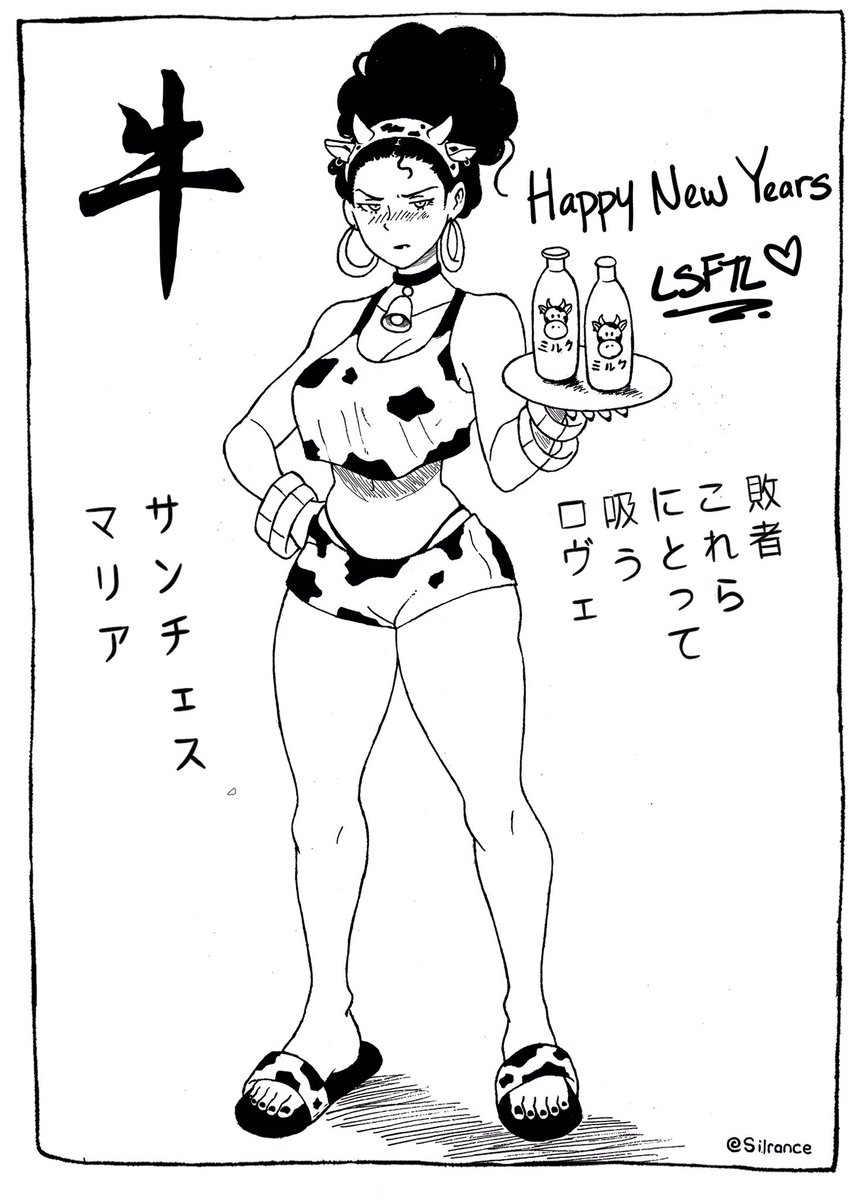 牛
Happy New Years
LSFTL
ミルク
ミルク
敗者
これら
にとって
吸う
ロヴェ
サンチェス
マリア
@Silrance